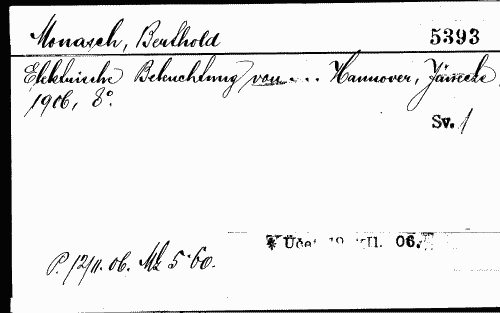 Monasch, Berthold
5393
Elektrische Beleuchtung von ... Hannover, Jänecke,
1906, 8°.
Sv. 1
Účet 19 II. 06.
P. 12/11. 06. Mk 5.60.